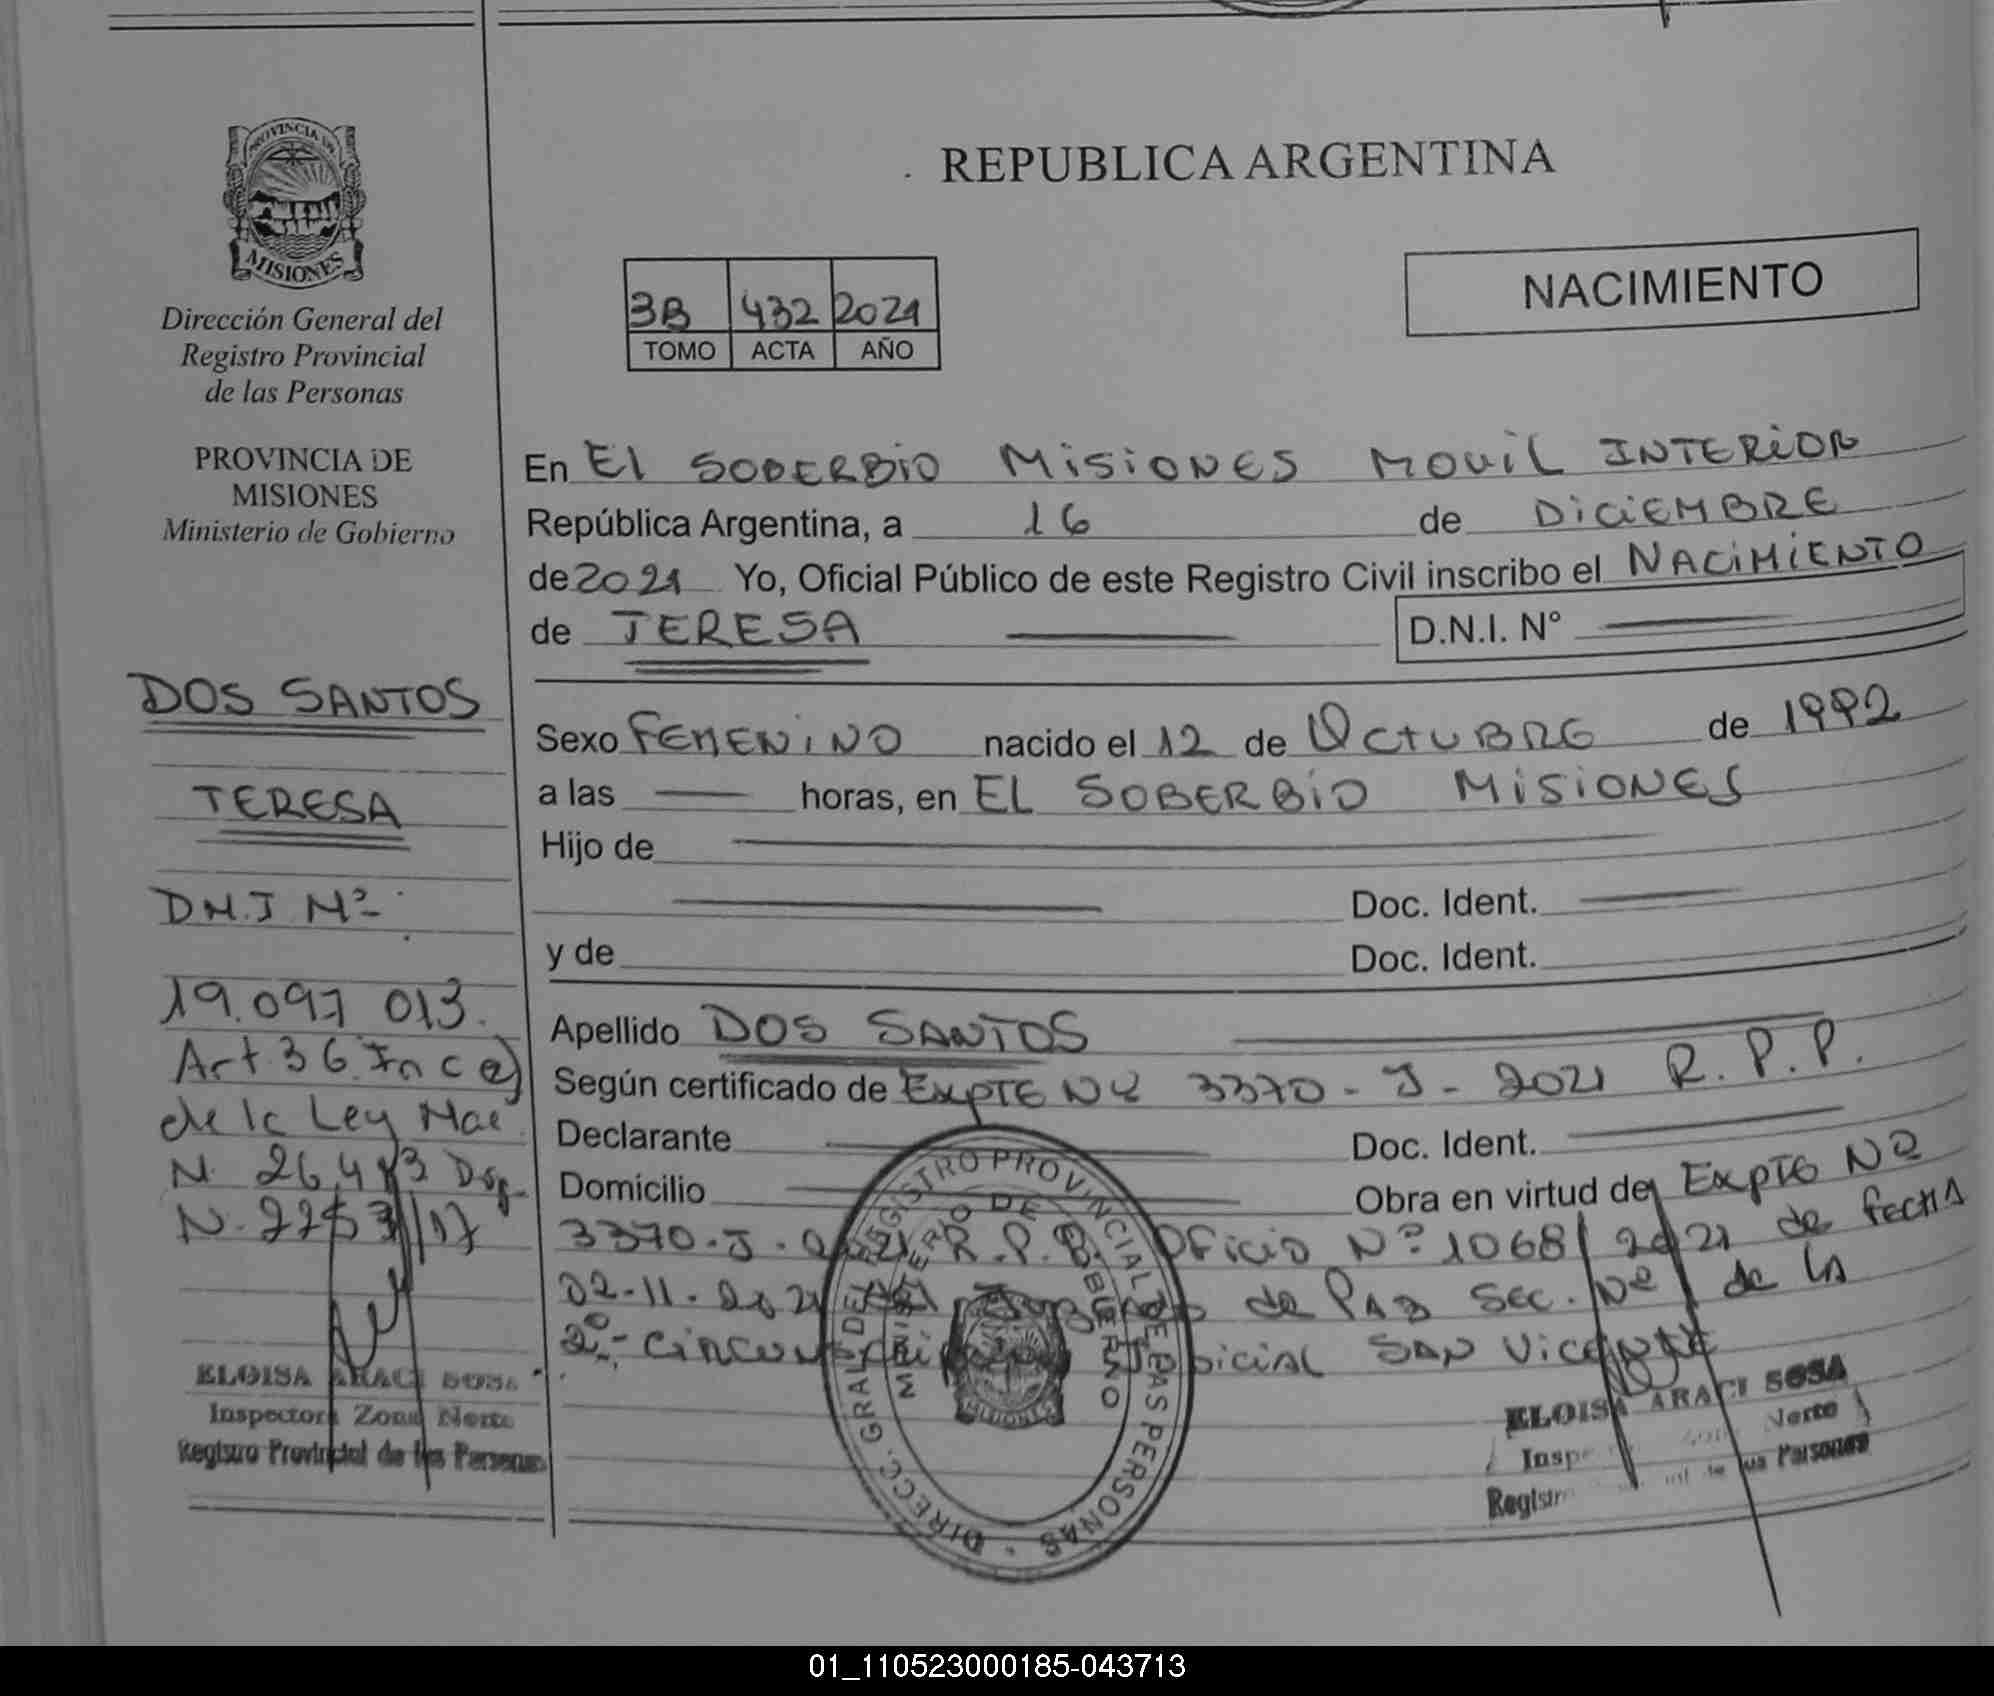 PROVINCIA DE
MISIONES
Dirección General del
Registro Provincial
de las Personas
PROVINCIA DE
MISIONES
Ministerio de Gobierno
DOS SANTOS
TERESA
D.N.I Nº
19.097 013.
Art. 36. Inc e)
de la Ley Nac
N. 26.413 Dsp.
N. 2253/17
ELOISA ARACI SOSA
Inspectora Zona Norte
Registro Provincial de las Personas
REPUBLICA ARGENTINA
3B 432 2021
TOMO ACTA AÑO
NACIMIENTO
En El SOBERBIO MISIONES MOVIL INTERIOR
República Argentina, a 16 de DICIEMBRE
de 2021 Yo, Oficial Público de este Registro Civil inscribo el NACIMIENTO
de TERESA D.N.I. N°
Sexo FEMENINO nacido el 12 de OCTUBRE de 1992
a las horas, en EL SOBERBIO MISIONES
Hijo de
Doc. Ident.
y de Doc. Ident.
Apellido DOS SANTOS
Según certificado de EXPTE Nº 3370 - J - 2021 R.P.P.
Declarante Doc. Ident.
Domicilio Obra en virtud de EXPTE Nº
3370-J-2021 R.P.P. Oficio Nº 1068/2021 de fecha
02-11-2021 Juzgado de PAZ Sec. Nº 1 de la
2º- Circunscripción Judicial SAN VICENTE
DIRECC. GRAL DEL REGISTRO PROVINCIAL DE LAS PERSONAS
MINISTERIO DE GOBIERNO
MISIONES
ELOISA ARACI SOSA
Norte
Personas
01_110523000185-043713